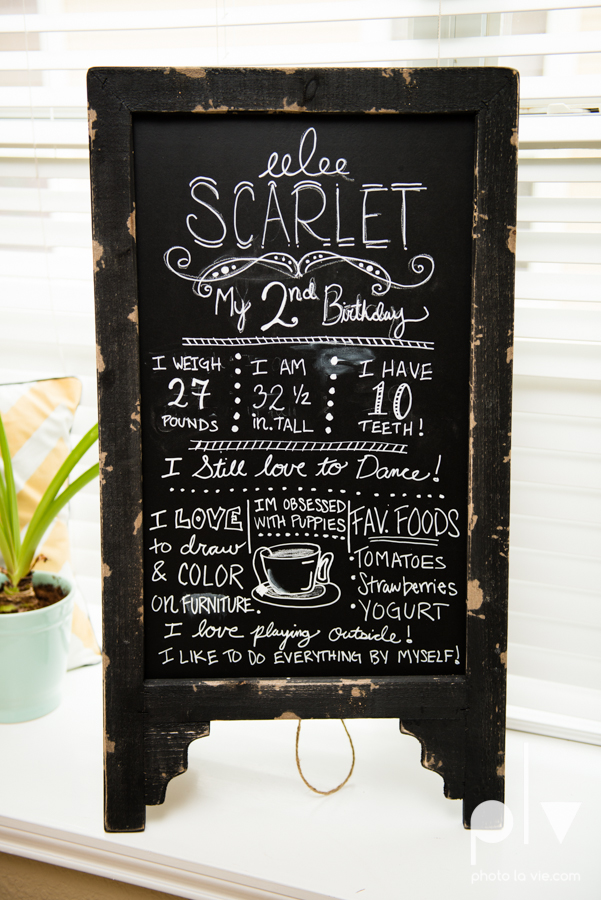 SCARLET
My 2nd Birthday
I WEIGH
27
POUNDS
I AM
32 ½
in. TALL
I HAVE
10
TEETH!
I Still love to Dance!
I LOVE
to draw
& COLOR
on FURNITURE.
IM OBSESSED
WITH PUPPIES
FAV. FOODS
•TOMATOES
•Strawberries
•YOGURT
I love playing outside!
I LIKE TO DO EVERYTHING BY MYSELF!
plv
photo la vie.com